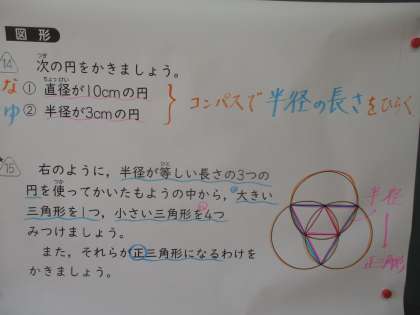 図形
14 次の円をかきましょう。
つぎ
な ① 直径が10cmの円
ちょっけい
ゆ ② 半径が3cmの円
コンパスで半径の長さをひらく
15 右のように，半径が等しい長さの3つの
ひと
円を使ってかいたもようの中から，大きい
つか
三角形を1つ，小さい三角形を4つ
みつけましょう。
また，それらが正三角形になるわけを
かきましょう。
半径
正三角形